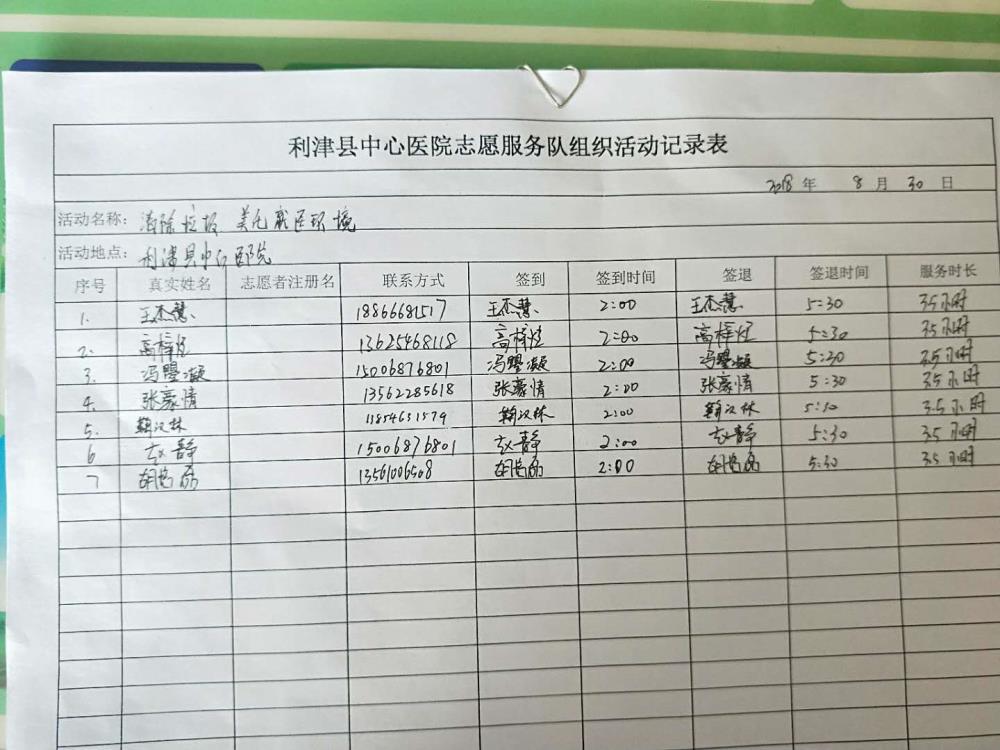 利津县中心医院志愿服务队组织活动记录表
2018年 8月 30日
活动名称：清除垃圾 美化医院环境
活动地点：利津县中心医院
序号 真实姓名 志愿者注册名 联系方式 签到 签到时间 签退 签退时间 服务时长
1. 王杰慧 18866681517 王杰慧 2:00 王杰慧 5:30 3.5小时
2. 高梓 13625468118 高梓 2:00 高梓 5:30 3.5小时
3. 冯曌凝 15006876801 冯曌凝 2:00 冯曌凝 5:30 3.5小时
4. 张豪情 13562285618 张豪情 2:00 张豪情 5:30 3.5小时
5. 汉林 汉林 2:00 汉林 5:30 3.5小时
6 赵静 15006876801 赵静 2:00 赵静 5:30 3.5小时
7 胡 13561006508 胡 2:00 胡 5:30 3.5小时